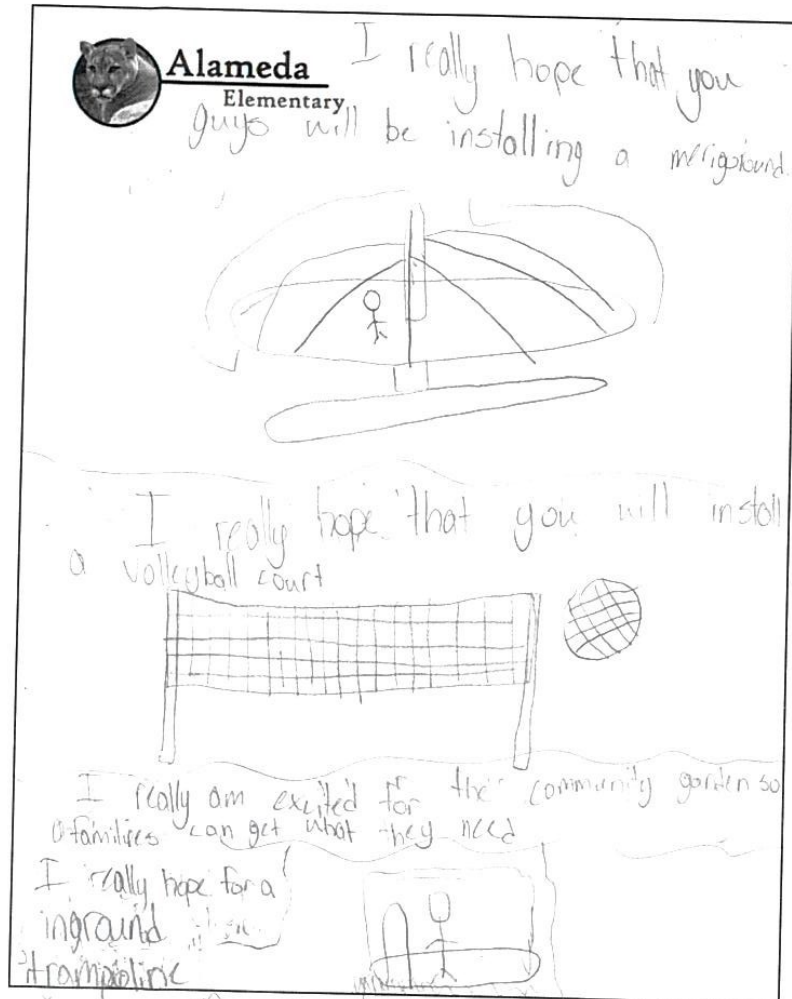 Alameda
Elementary
I really hope that you
guys will be installing a merigoround.
I really hope that you will install
a volleyball court
I really am excited for the community garden so
families can get what they need
I really hope for a
inground
trampoline